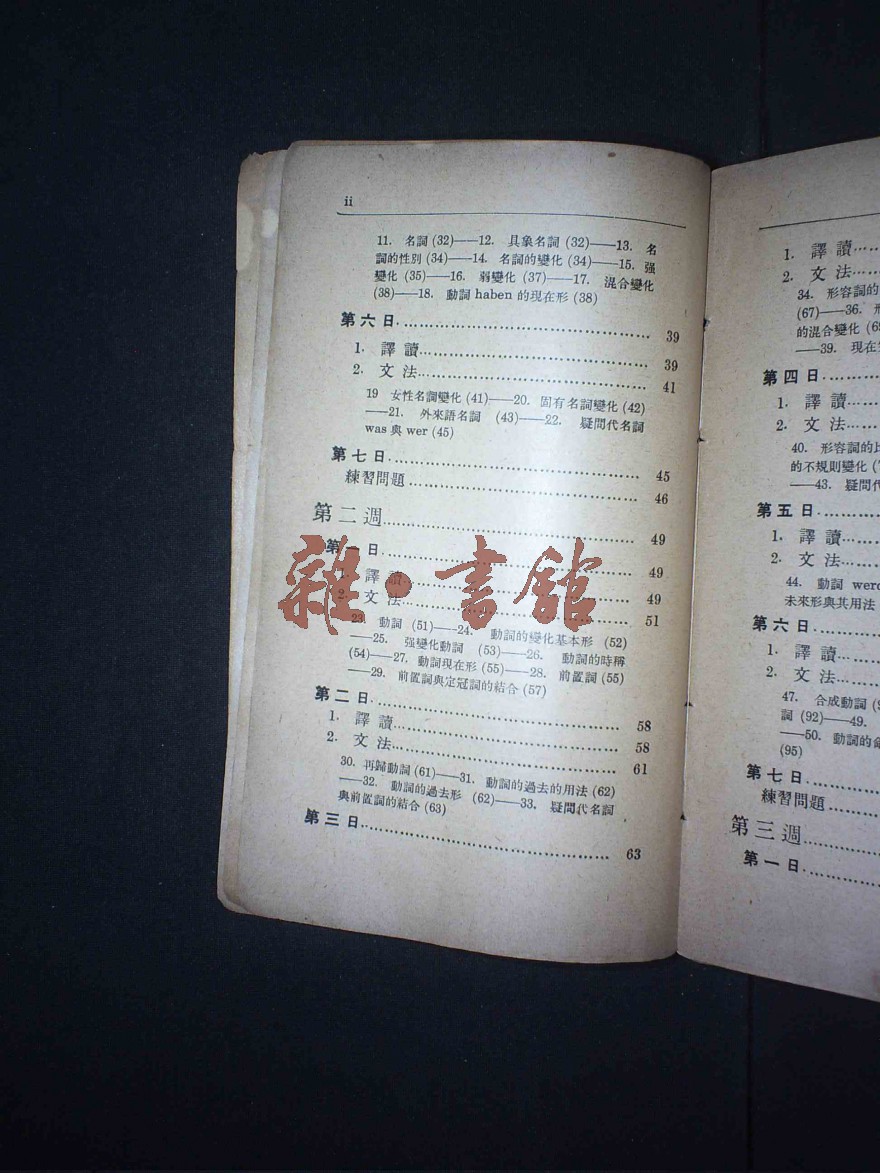 ii
11. 名詞 (32)——12. 具象名詞 (32)——13. 名
詞的性別 (34)——14. 名詞的變化 (34)——15. 强
變化 (35)——16. 弱變化 (37)——17. 混合變化
(38)——18. 動詞 haben 的現在形 (38)
第六日 39
1. 譯讀 39
2. 文法 41
19 女性名詞變化 (41)——20. 固有名詞變化 (42)
——21. 外來語名詞 (43)——22. 疑問代名詞
was 與 wer (45)
第七日 45
練習問題 46
第二週 49
第一日 49
1. 譯讀 49
2. 文法 51
23. 動詞 (51)——24. 動詞的變化基本形 (52)
——25. 强變化動詞 (53)——26. 動詞的時稱
(54)——27. 動詞現在形 (55)——28. 前置詞 (55)
——29. 前置詞與定冠詞的結合 (57)
第二日 58
1. 譯讀 58
2. 文法 61
30. 再歸動詞 (61)——31. 動詞的過去的用法 (62)
——32. 動詞的過去形 (62)——33. 疑問代名詞
與前置詞的結合 (63)
第三日 63
雜·書館
1. 譯讀
2. 文法
34. 形容詞的
(67)——36.
的混合變化
——39. 現在
第四日
1. 譯讀
2. 文法
40. 形容詞的
的不規則變化
——43. 疑問代
第五日
1. 譯讀
2. 文法
44. 動詞
未來形與其用法
第六日
1. 譯讀
2. 文法
47. 合成動詞
詞 (92)——49.
——50. 動詞的
(95)
第七日
練習問題
第三週
第一日